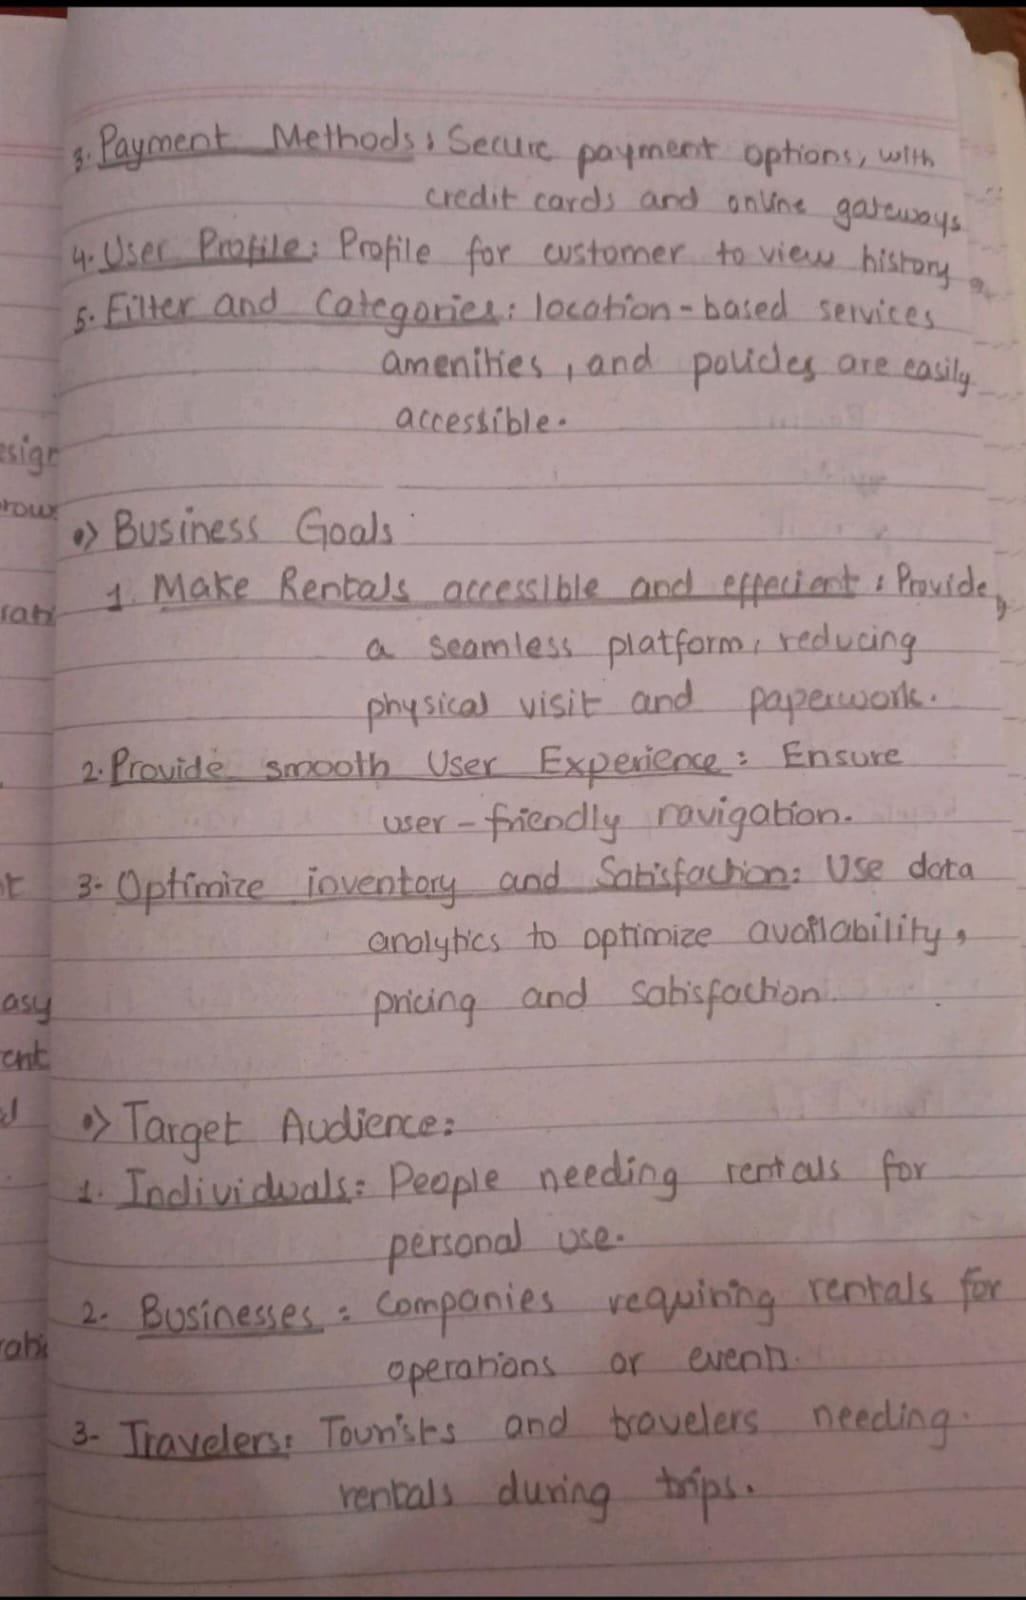 3. Payment Methods: Secure payment options, with
credit cards and online gateways
4. User Profile: Profile for customer to view history
5. Filter and Categories: location-based services
amenities, and policies are easily
accessible.
Business Goals
1. Make Rentals accessible and effecient: Provide,
a seamless platform, reducing
physical visit and paperwork.
2. Provide smooth User Experience: Ensure
user-friendly navigation.
3- Optimize inventory and Satisfaction: Use data
analytics to optimize availability,
pricing and satisfaction.
Target Audience:
1. Individuals: People needing rentals for
personal use.
2. Businesses: Companies requiring rentals for
operations or events.
3- Travelers: Tourists and travelers needing
rentals during trips.